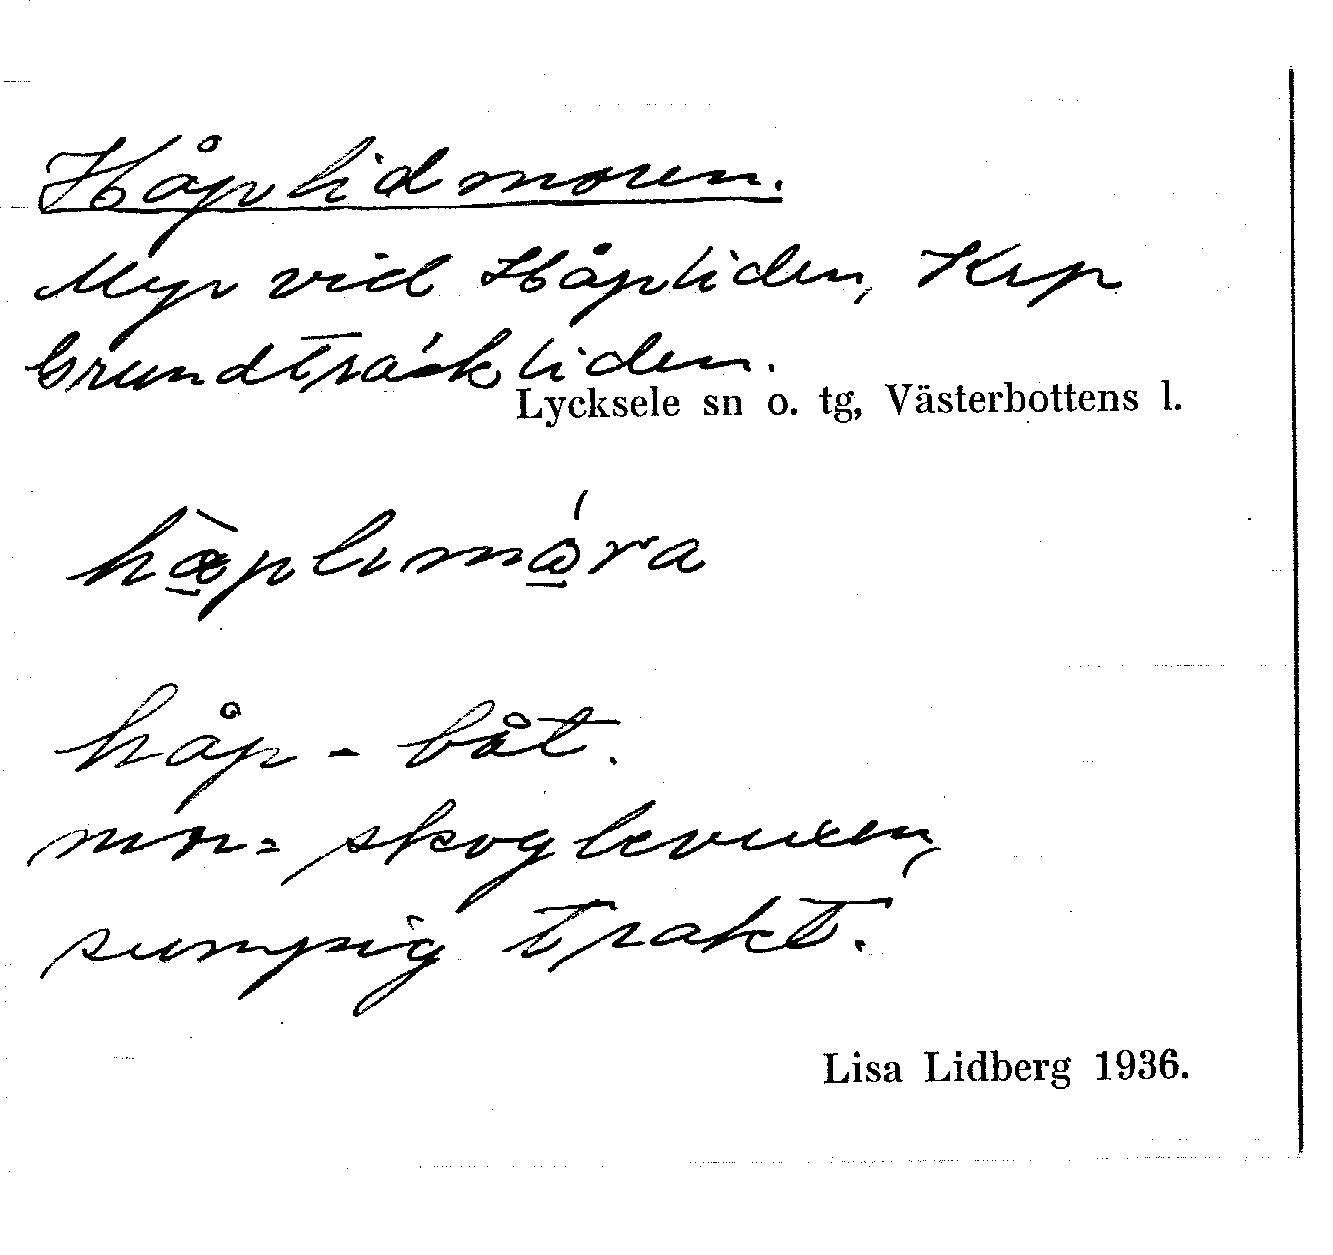 Håplidmoren.
Myr vid Håpliden, Krp
Grundträskliden.
Lycksele sn o. tg, Västerbottens l.
håp - båt.
mor= skogbevuxen,
sumpig trakt.
Lisa Lidberg 1936.